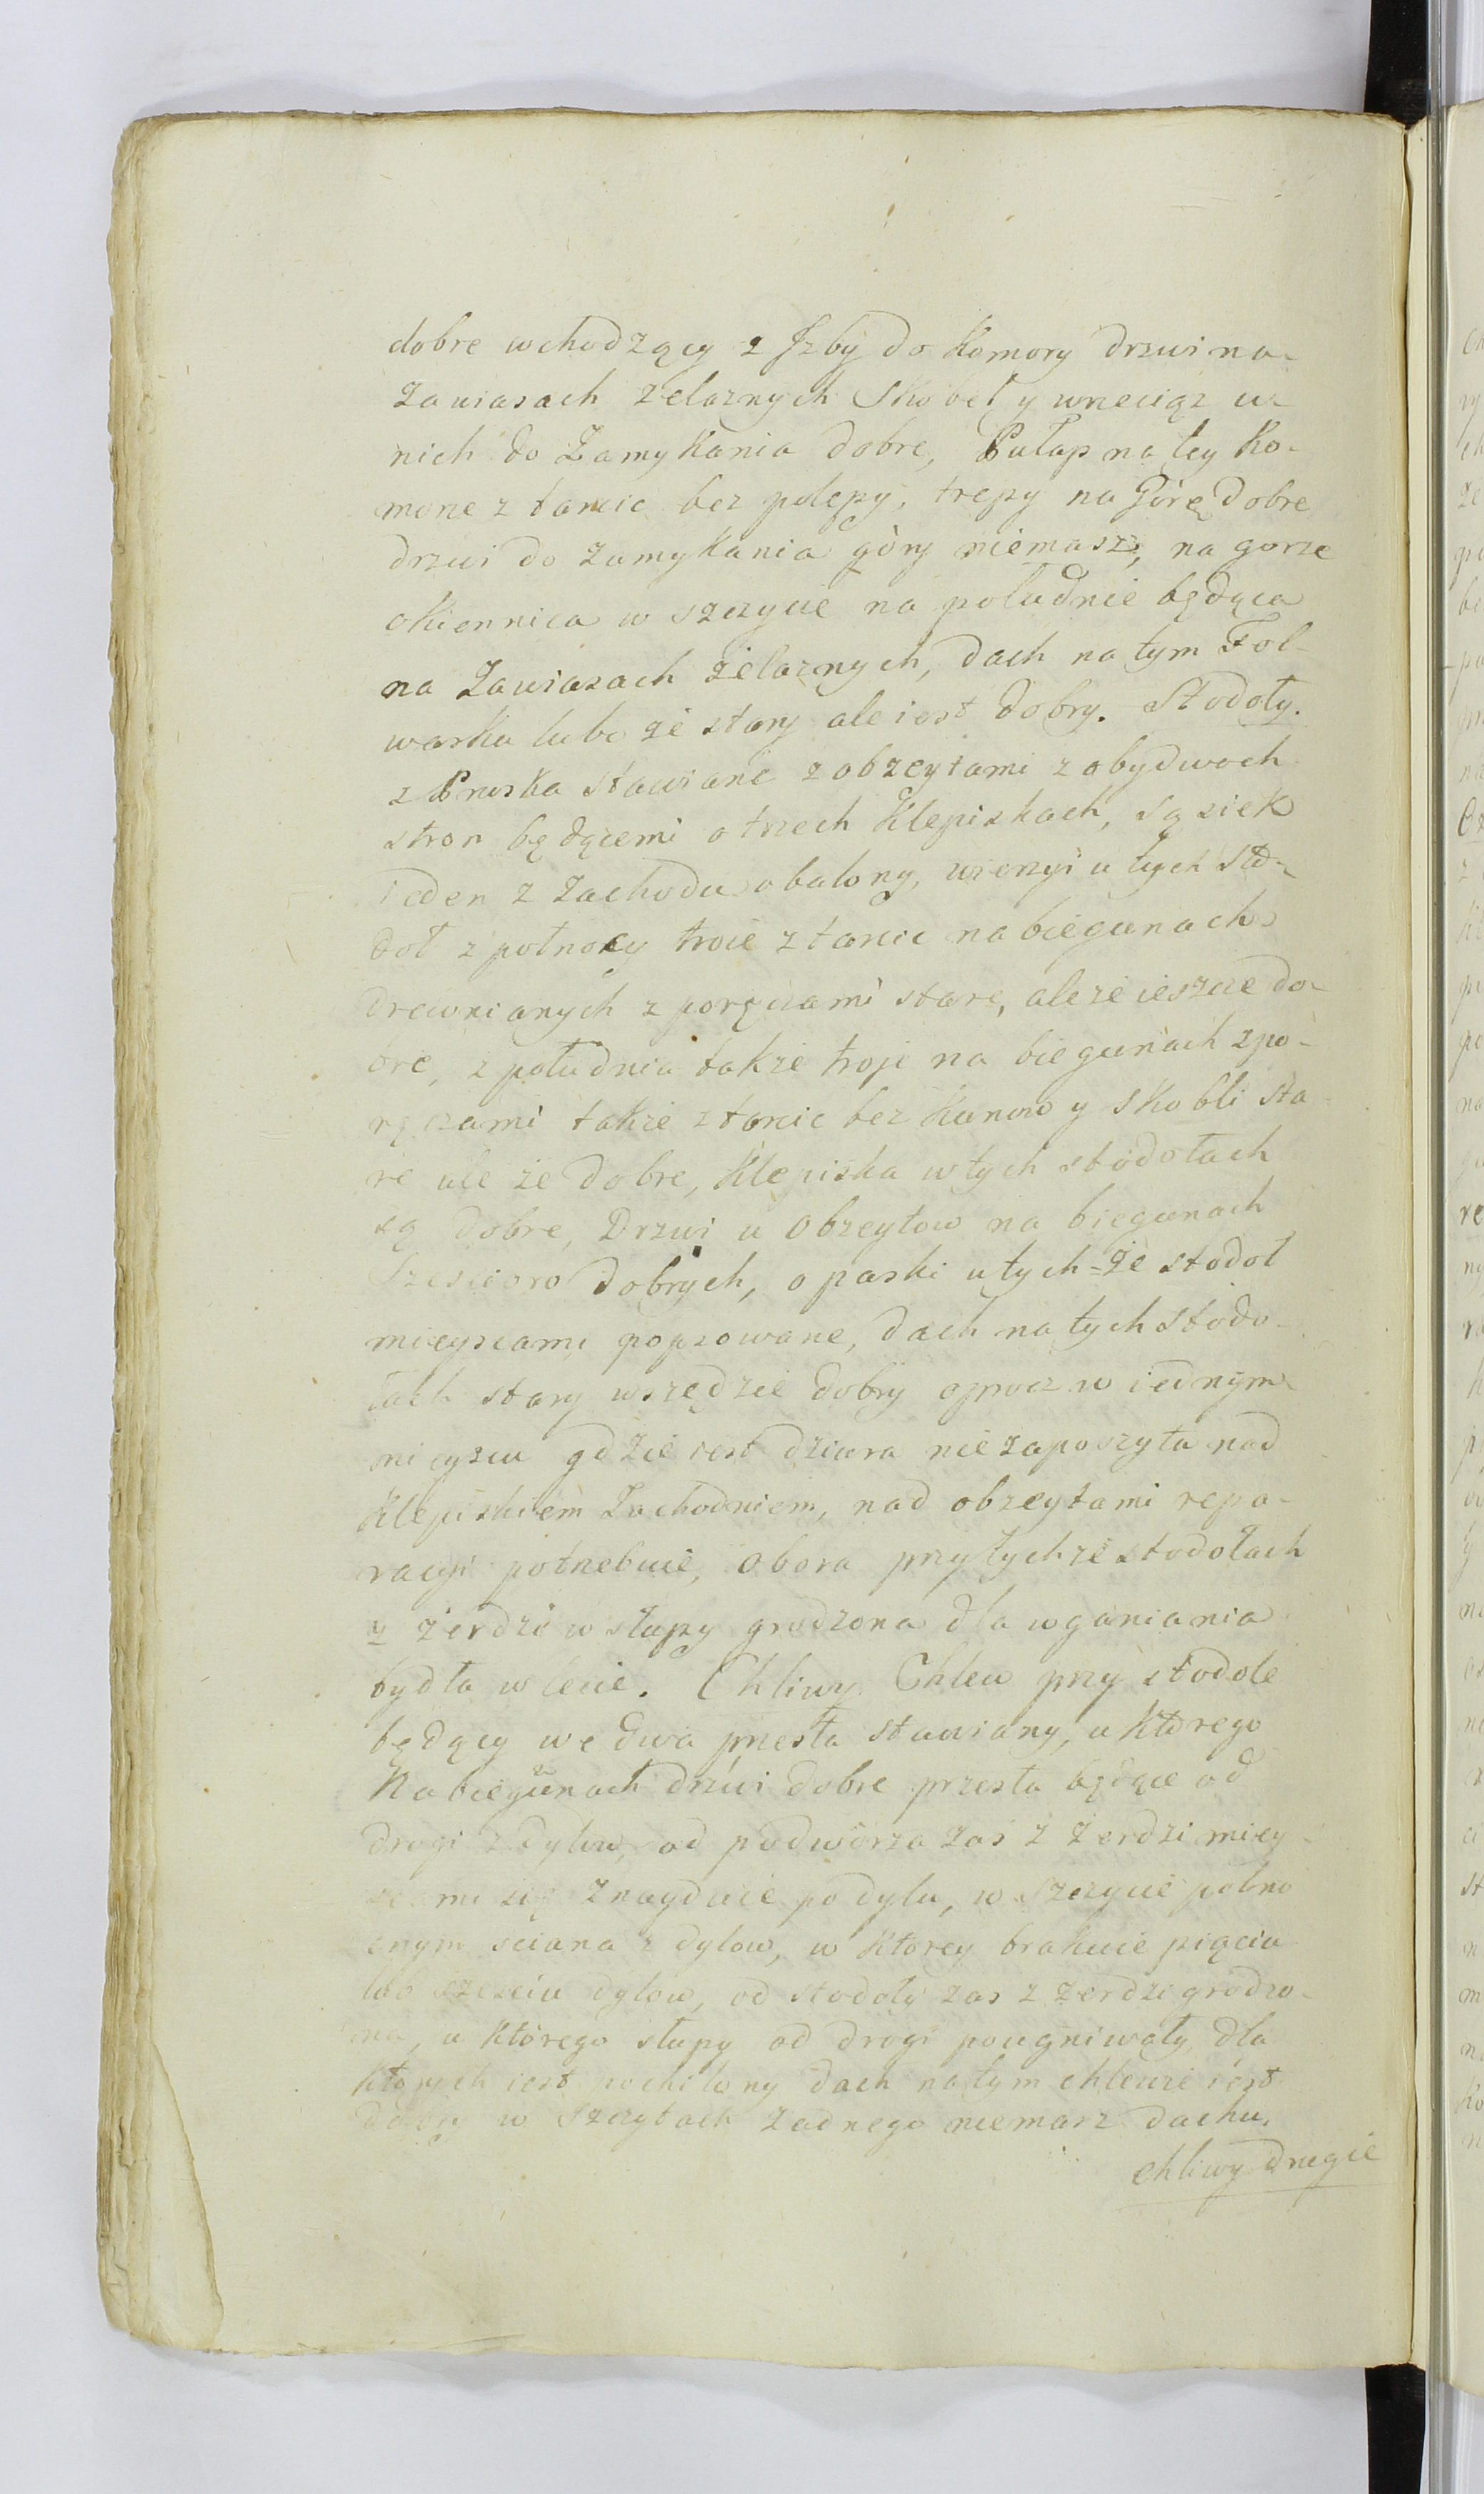 dobre wchodzący z Jzby do Komory drzwi na
Zawiasach zelaznych Skobel y wrzeciąz w
nich do Zamykania dobre, Pułap na tey Ko-
morze z tarcic bez polepy, trepy na Górę dobre
drzwi do zamykania góry niemasz, na gorze
okiennica w szczycie na południe będąca
na Zawiasach żelaznych, dach na tym Fol-
warku lubo że stary ale iest dobry. Stodoły.
z Pruska stawiane z obzeytami z obydwoch
stron będącemi o trzech Klepiskach, Sąsiek
ieden z Zachodu obalony, wierzyi u tych sto-
doł z połnocy troie z tarcic na biegunach
drewnianych z poręczami stare, ale że ieszcze do-
bre, z południa takze troje na biegunach z po-
ręczami takze z tarcic bez Kunow y Skobli sta-
re ale że dobre, Klepiska w tych stodołach
są dobre, Drzwi u Obzeytow na biegunach
Szescioro dobrych, opaski u tych=że stodoł
mieyscami popsowane, dach na tych stodo-
łach stary wszędzie dobry oprocz w iednym
mieyscu gdzie iest dziura niezaposzyta nad
Klepiskiem Zachodniem, nad obzeytami repa-
racyi potrzebuie, Obora przy tychże stodołach
z żerdzi w słupy grodzona dla wganiania
bydła w lecie. Chliwy. Chlew przy stodole
będący we dwa przesła stawiany, u Ktorego
Na biegunach drzwi dobre przesła będące od
drogi z dylow, od podworza zas z żerdzi miey-
scami się Znayduie po dylu, w szczycie połno
cnym sciana z dylow, w Ktorey brakuie pięciu
lub szesciu dylow, od stodoły zas z żerdzi grodzo-
na, u Którego słupy od drogi pougniwały, dla
Ktorych iest pochilony dach na tym chlewie iest
dobry w Szczytach Zadnego niemasz dachu.
chliwy drugie